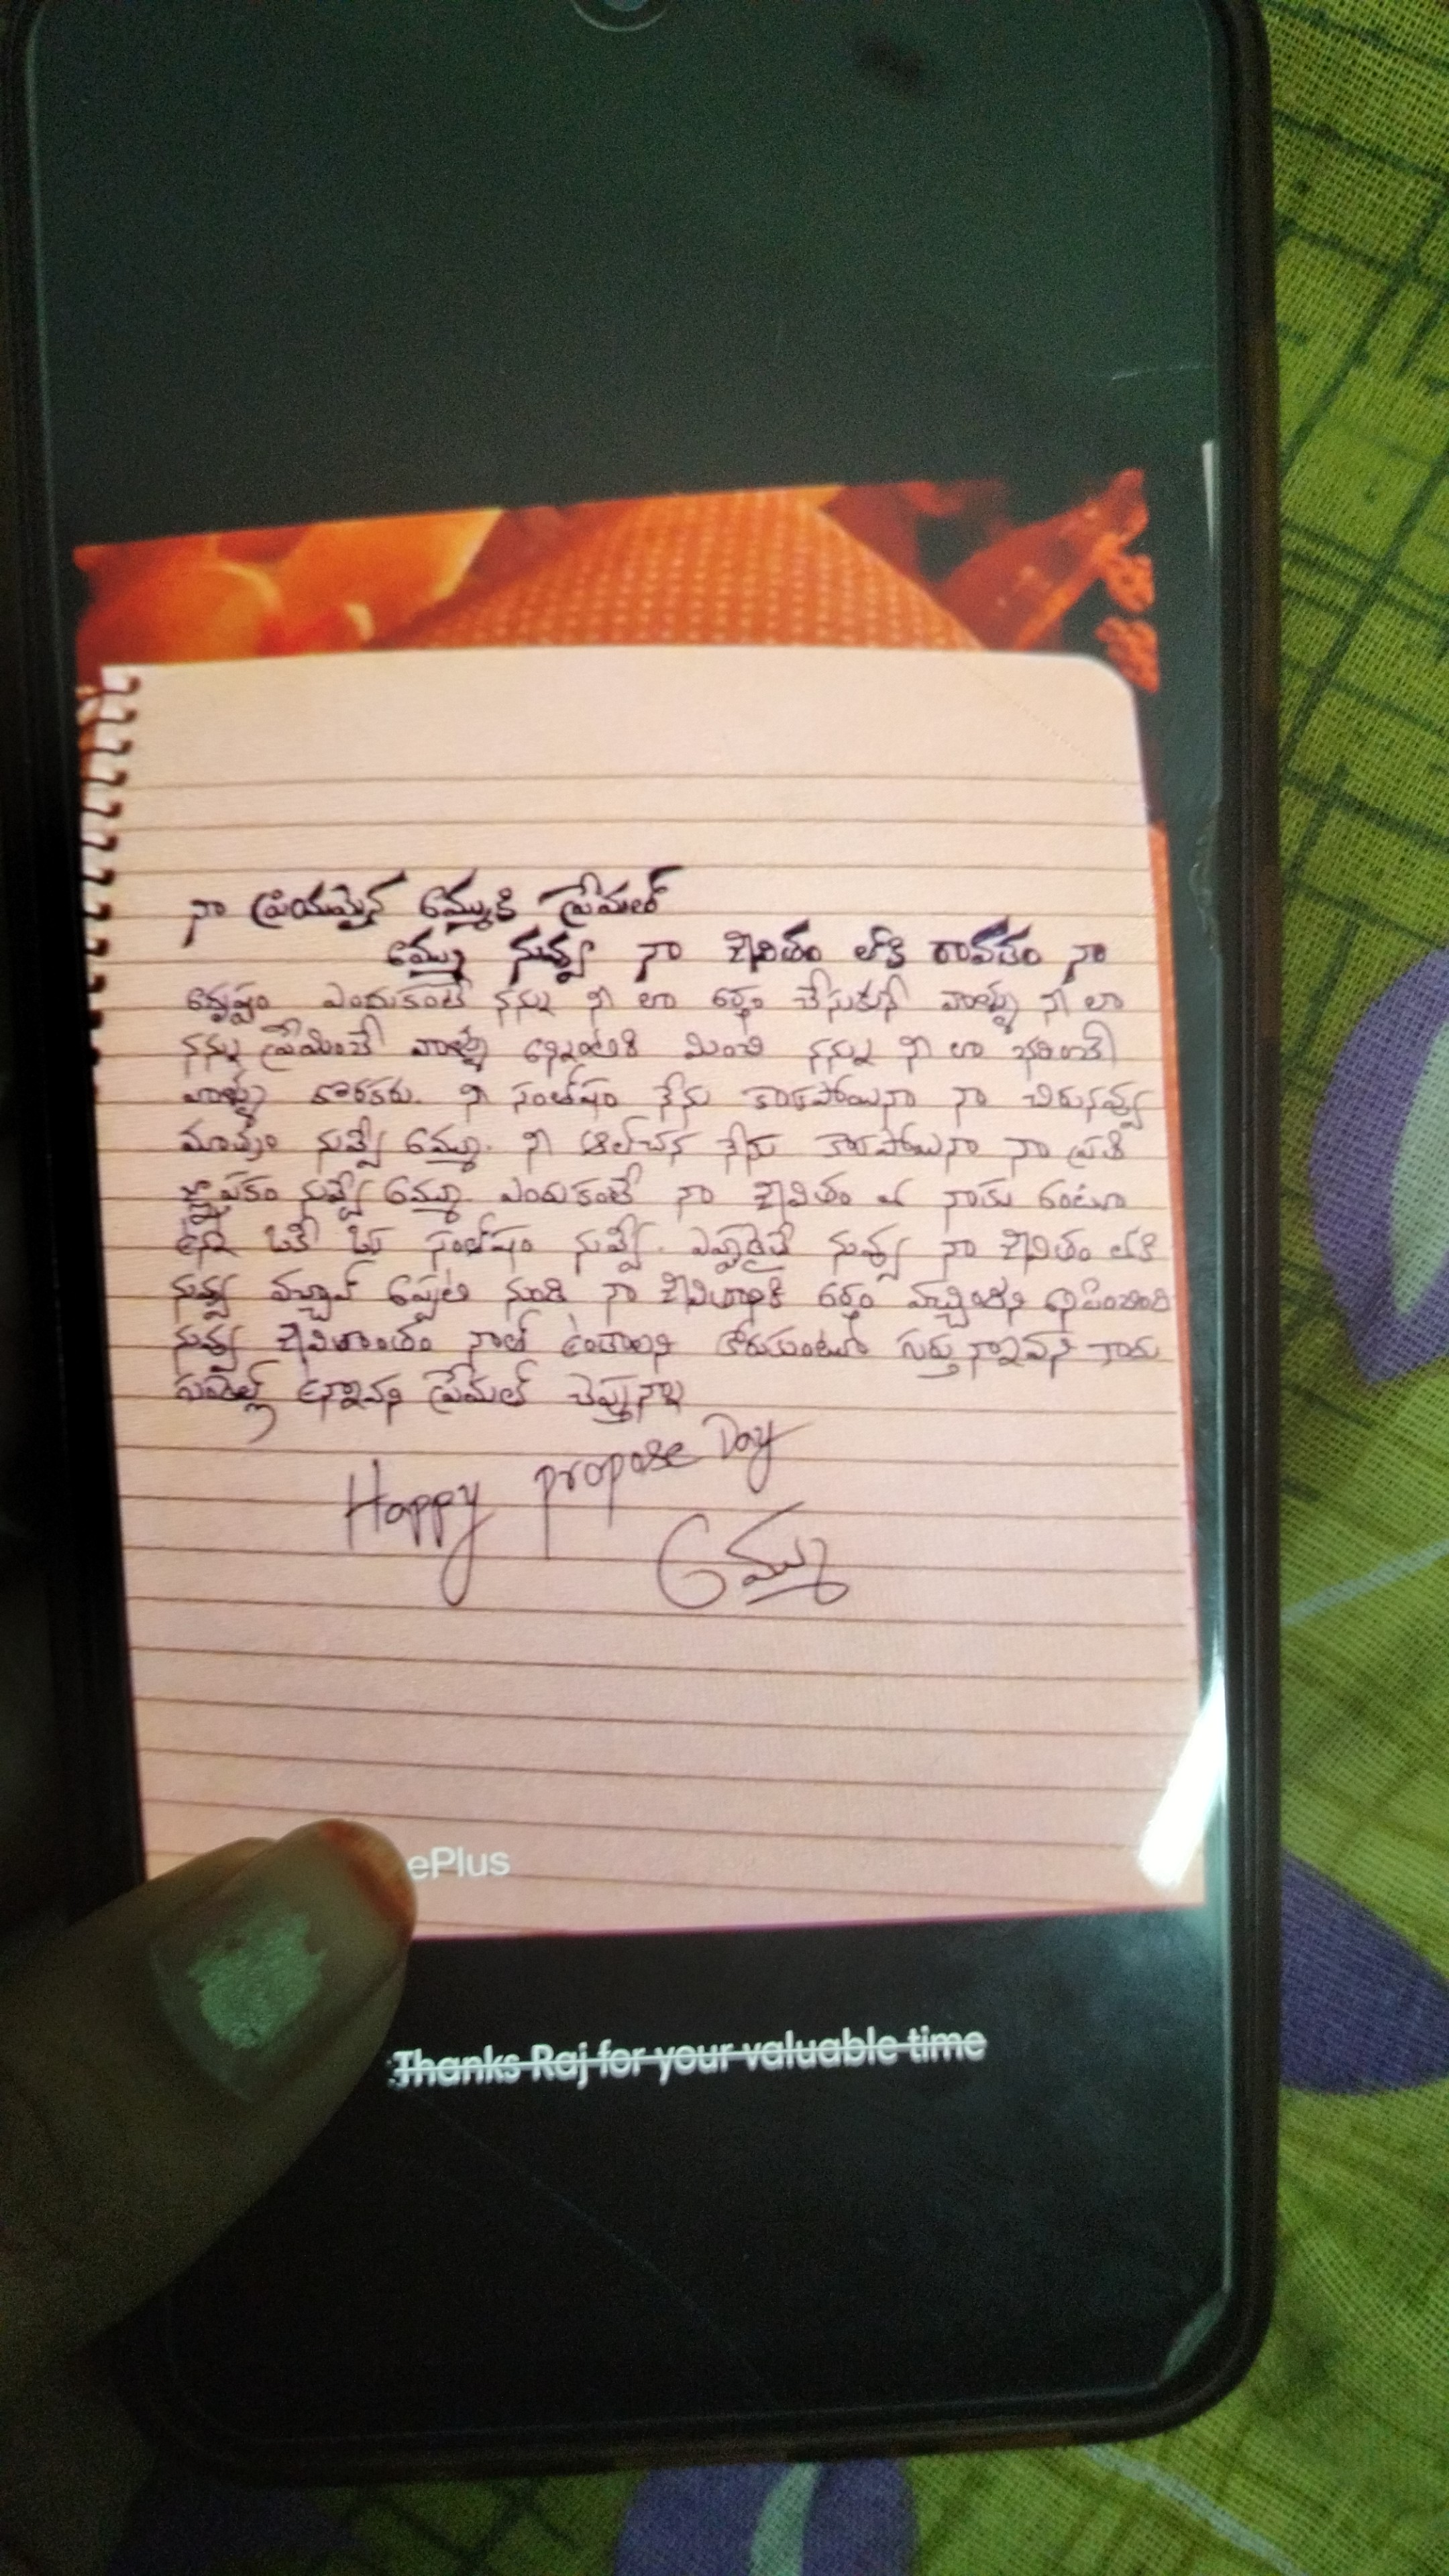 నా ప్రియమైన అమ్ముకి ప్రేమలో
అమ్ము నువ్వు నా జీవితం లోకి రావడం నా
అదృష్టం ఎందుకంటే నన్ను నీ లా అర్థం చేసుకునే వాళ్ళు నీ లా
నన్ను ప్రేమించే వాళ్ళు అన్నింటికి మించి నన్ను నీ లా భరించే
వాళ్ళు దొరకరు. నీ సంతోషం నేను కాకపోయినా నా చిరునవ్వు
మాత్రం నువ్వే అమ్ము. నీ ఆలోచన నేను కాకపోయినా నా ప్రతి
జ్ఞాపకం నువ్వే అమ్ము. ఎందుకంటే నా జీవితం లో నాకు అంటూ
ఉన్న ఒకే ఒక సంతోషం నువ్వే. ఎప్పుడైతే నువ్వు నా జీవితం లోకి
నువ్వు వచ్చావో అప్పటి నుండి నా జీవితానికి అర్థం వచ్చిందని అనిపించింది
నువ్వు జీవితాంతం నాతో ఉండాలని కోరుకుంటూ
ఉన్నావని ప్రేమలో చెప్తున్నా
Happy propose Day
అమ్ము
ePlus
Thanks Raj for your valuable time